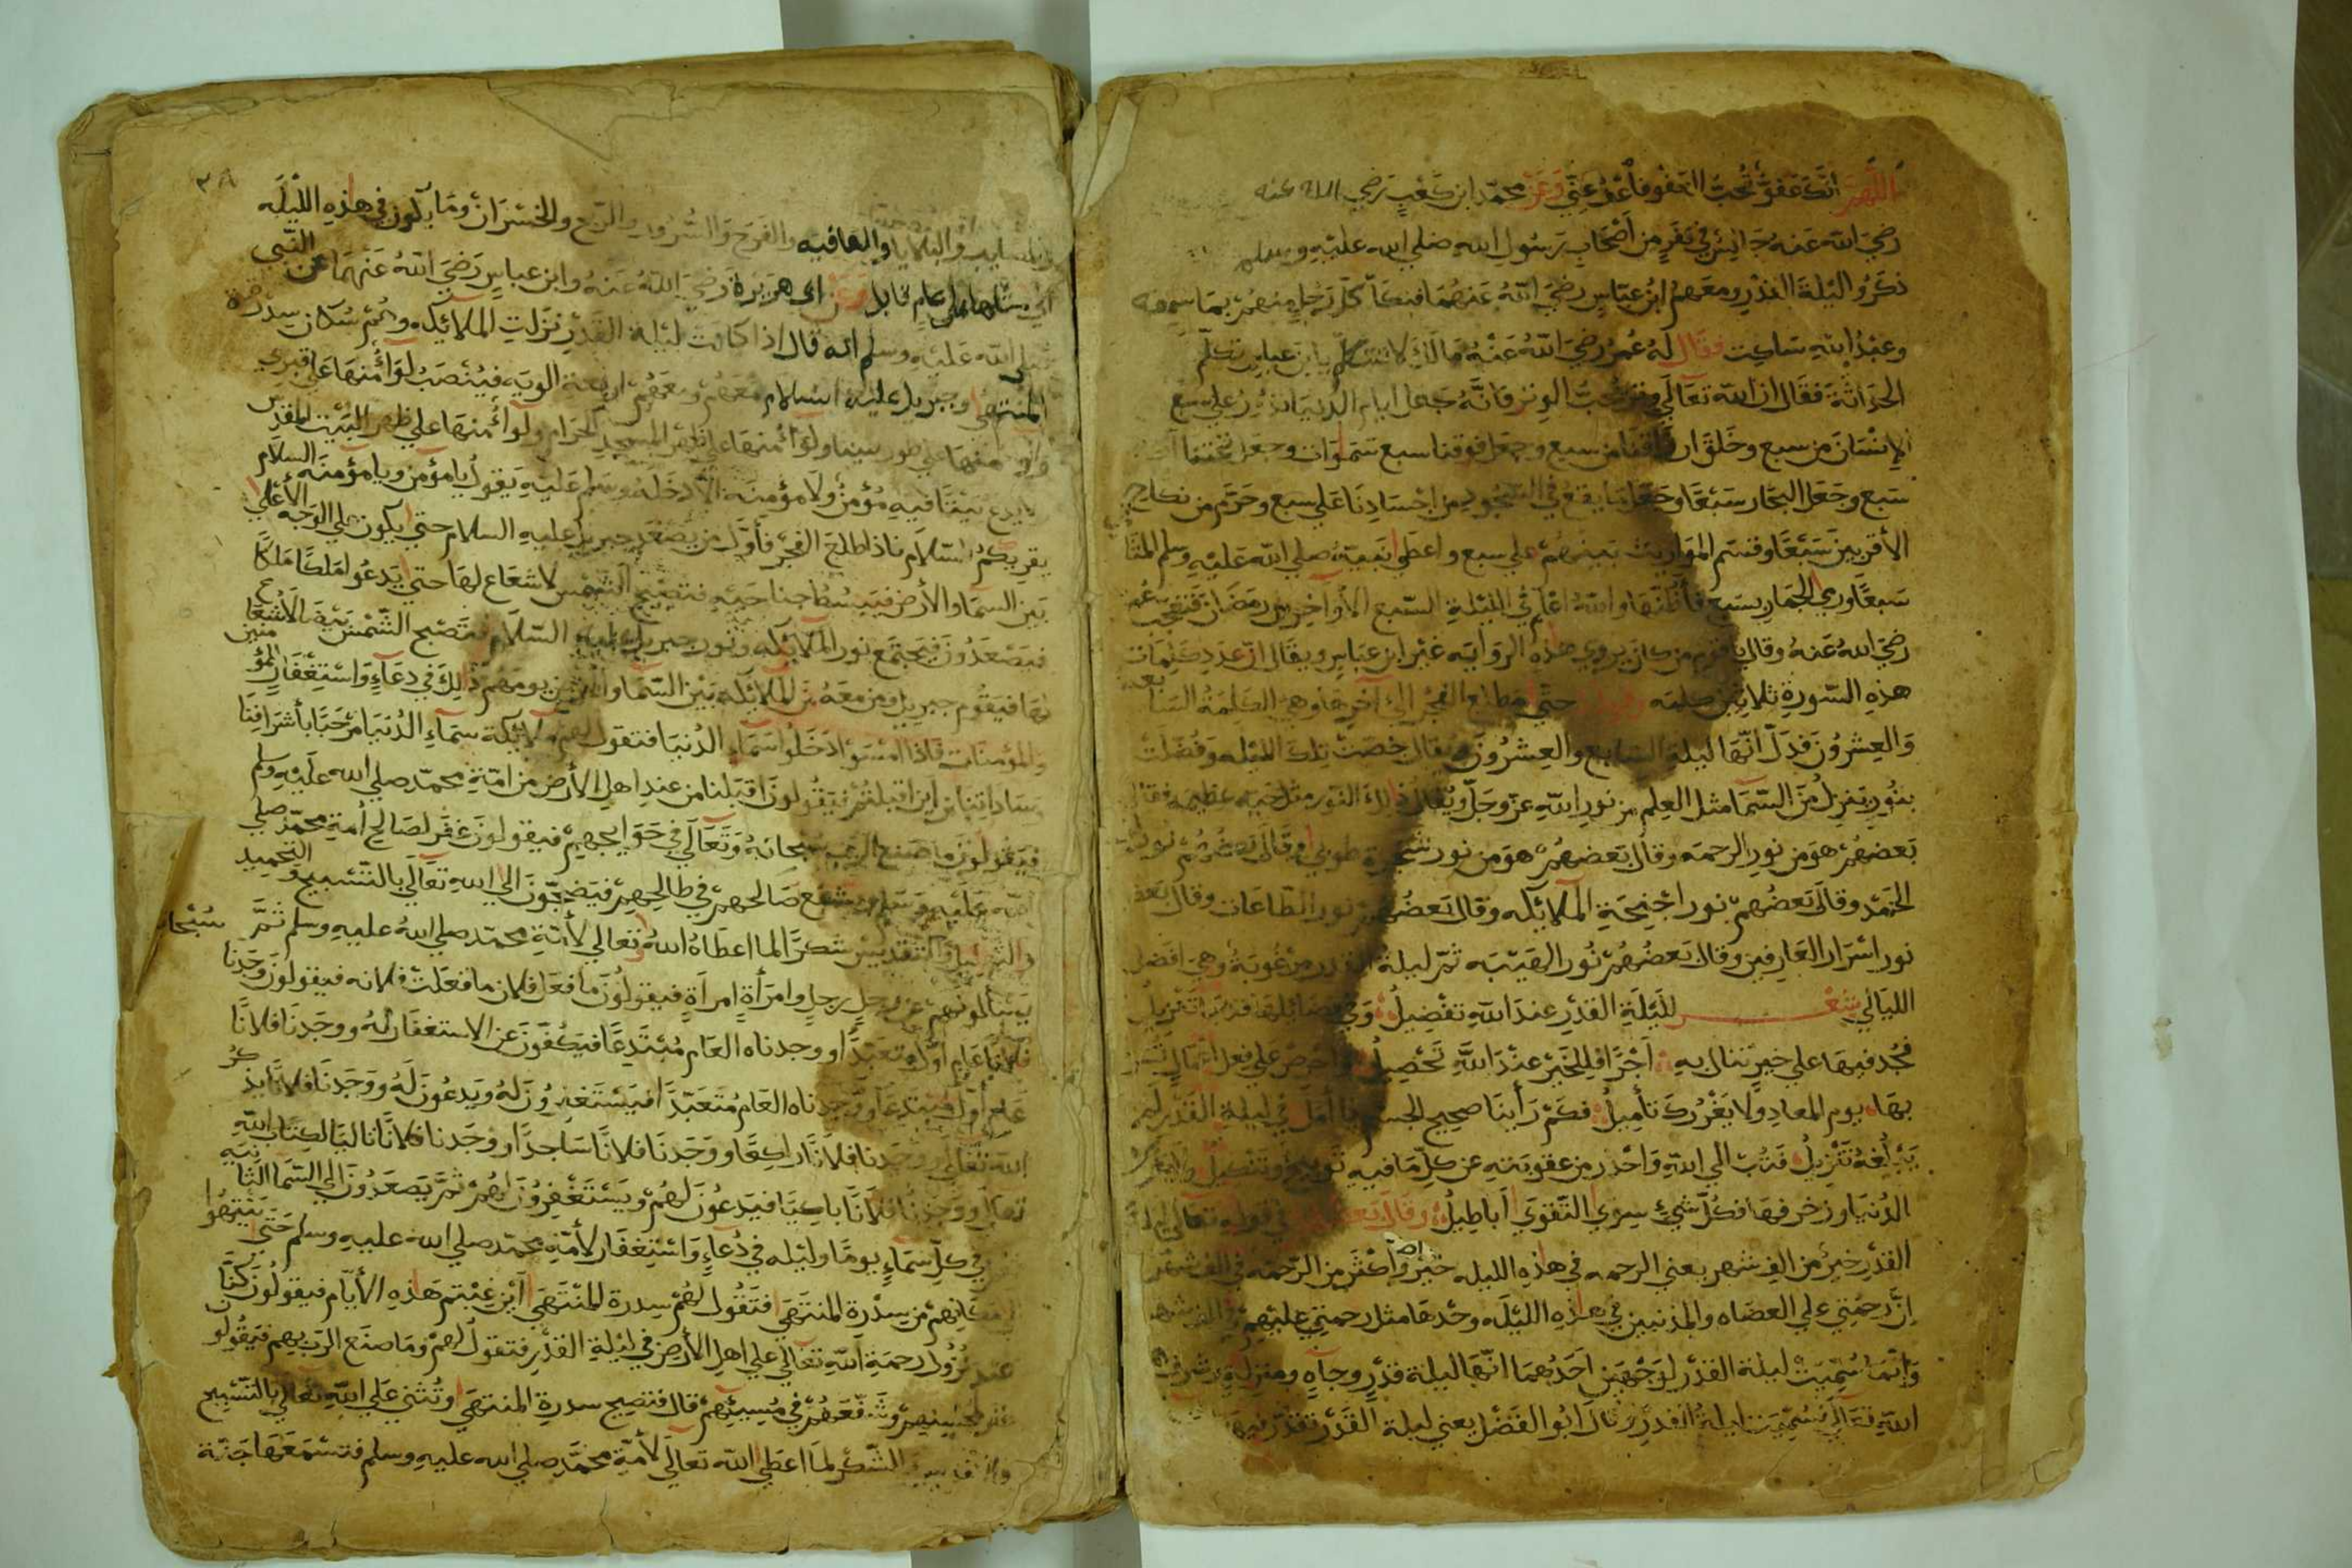 اللهم انك عفو تحب العفو فاعف عني وعن محمد ابن كعب رضي الله عنه
رضي الله عنه جالس في نفر من اصحاب رسول الله صلي الله عليه وسلم
ذكروا ليلة القدر ومعهم ابن عباس رضي الله عنهما فتكلم كل رجل منهم بما سمعه
وعبد الله ساكت فقال له عمر رضي الله عنه مالك لا تتكلم يا ابن عباس تكلم
الحداثة فقال ان الله تعالي وتر يحب الوتر فانه جعل ايام الدنيا تدور علي سبع
الانسان من سبع وخلق ارزاقنا من سبع وجعل فوقنا سبع سموات وجعل تحتنا
سبع وجعل البحار سبعا وجعل ما يقع في السجود من اجسادنا علي سبع وحرم من نكاح
الأقربين سبعا وقسم المواريث بينهم علي سبع واعطي نبيه صلي الله عليه وسلم المثا
سبعا ورمي الجمار بسبع فأظنها والله اعلم في الليلة السبع الأواخر من رمضان فتعجب عمر
رضي الله عنه وقال يا قوم من كان يروي هذه الرواية غير ابن عباس ويقال ان عدد كلمات
هذه السورة ثلاثين كلمه حتي مطلع الفجر الي آخرها وهي الكلمة السابعه
والعشرون فدل انها ليلة السابع والعشرون ويقال خصت تلك الليله وفضلت
بنور ينزل من السما مثل العلم من نور الله عز وجل ويقال ذلك النور مثل خيمه عظيمه فقال
بعضهم هو من نور الرحمه وقال بعضهم هو من نور شجرة طوبي وقال بعضهم نور
الحمد وقال بعضهم نور اجنحة الملائكه وقال بعضهم نور الطاعات وقال بعض
نور اسرار العارفين وقال بعضهم نور الهيبه ثم ليلة القدر مرغوبة وهي افضل
الليالي شعر لليلة القدر عند الله تفضيل وفي فضائلها قد تنزيل
فجد فيها علي خير تنال به اجرا فللخير عند الله تحصيل واحرص علي فعل اعمال
بها يوم المعاد ولا يغررك تأميل فكم رأينا صحيح الجسم ذا امل في ليلة القدر لم
يبلغه تنزيل فتب الي الله واحذر من عقوبته عن كل ما فيه توبيخ وتنكيل ولا
الدنيا وزخرفها فكل شيء سوي التقوي اباطيل وقال بعضهم في قوله تعالي ليلة
القدر خير من الف شهر يعني الرحمه في هذه الليله خير واكثر من الرحمة في الف شهر
ان رحمتي علي العصاه والمذنبين في هذه الليله وحدها مثل رحمتي عليهم في الف شهر
وانما سميت ليلة القدر لوجهين احدهما انها ليلة قدر وجاه ومنزلة
الله تعالي فسميت ليلة القدر وقال ابو الفضل يعني ليلة القدر تقدر فيها
٣٨
والبلايا والعافيه والفرح والسرور والربح والخسران وما يكون في هذه الليله
الي مثلها الي عام قابل وعن ابي هريرة رضي الله عنه وابن عباس رضي الله عنهما عن النبي
صلي الله عليه وسلم انه قال اذا كانت ليلة القدر نزلت الملائكه وهم سكان سدرة
المنتهي وجبريل عليه السلام معهم ومعهم اربعة الويه فينصب لواء منها علي قبري
ولواء منها علي طور سينا ولواء منها علي ظهر المسجد الحرام ولواء منها علي ظهر البيت المقدس
لا يدع بيتا فيه مؤمن ولا مؤمنة الا دخله وسلم عليه يقول يا مؤمن ويا مؤمنه السلام
يقريكم السلام فاذا طلع الفجر فأول من يصعد جبريل عليه السلام حتي يكون علي الوجه الأعلي
بين السما والأرض فيبسط جناحيه فتصبح الشمس لا شعاع لها حتي يدعو ملكا ملكا
فيصعدون فيجتمع نور الملائكه ونور جبريل عليه السلام فتصبح الشمس بيضا لا شعاع
لها فيقوم جبريل ومن معه من الملائكه بين السما والأرض يومهم ذلك في دعاء واستغفار للمؤمنين
والمؤمنات فاذا امسوا دخلوا سماء الدنيا فتقول لهم ملائكة سماء الدنيا مرحبا بأشرافنا
وساداتنا من اين اقبلتم فيقولون اقبلنا من عند اهل الأرض من امة محمد صلي الله عليه وسلم
فيقولون ما صنع الرب سبحانه وتعالي في حوايجهم فيقولون غفر لصالح أمة محمد صلي
الله عليه وسلم وشفع صالحهم في طالحهم فيضجون الي الله تعالي بالتسبيح والتحميد
والتهليل والتقديس شكرا لما اعطاه الله تعالي لأمة محمد صلي الله عليه وسلم ثم
يسألونهم عن رجل رجل وامرأة امرأة فيقولون ما فعل فلان ما فعلت فلانه فيقولون وجدنا
فلانا عام أول متعبدا ووجدناه العام مبتدعا فيكفون عن الاستغفار له ووجدنا فلانا
عام أول مبتدعا ووجدناه العام متعبدا فيستغفرون له ويدعون له ووجدنا فلانا يذكر
الله تعالي ووجدنا فلانا راكعا ووجدنا فلانا ساجدا ووجدنا فلانا تاليا لكتاب الله
تعالي ووجدنا فلانا باكيا فيدعون لهم ويستغفرون لهم ثم يصعدون الي السما الثانيه
في كل سماء يوما وليله في دعاء واستغفار لأمة محمد صلي الله عليه وسلم حتي ينتهوا
مكانهم من سدرة المنتهي فتقول لهم سدرة المنتهي اين غبتم هذه الأيام فيقولون كنا
عند نزول رحمة الله تعالي علي اهل الأرض في ليلة القدر فتقول لهم وما صنع الرب بهم فيقولون
غفر لمحسنهم وشفعهم في مسيئهم قال فتصيح سدرة المنتهي وتثني علي الله تعالي بالتسبيح
الشكر لما اعطي الله تعالي لأمة محمد صلي الله عليه وسلم فتسمعها جنة